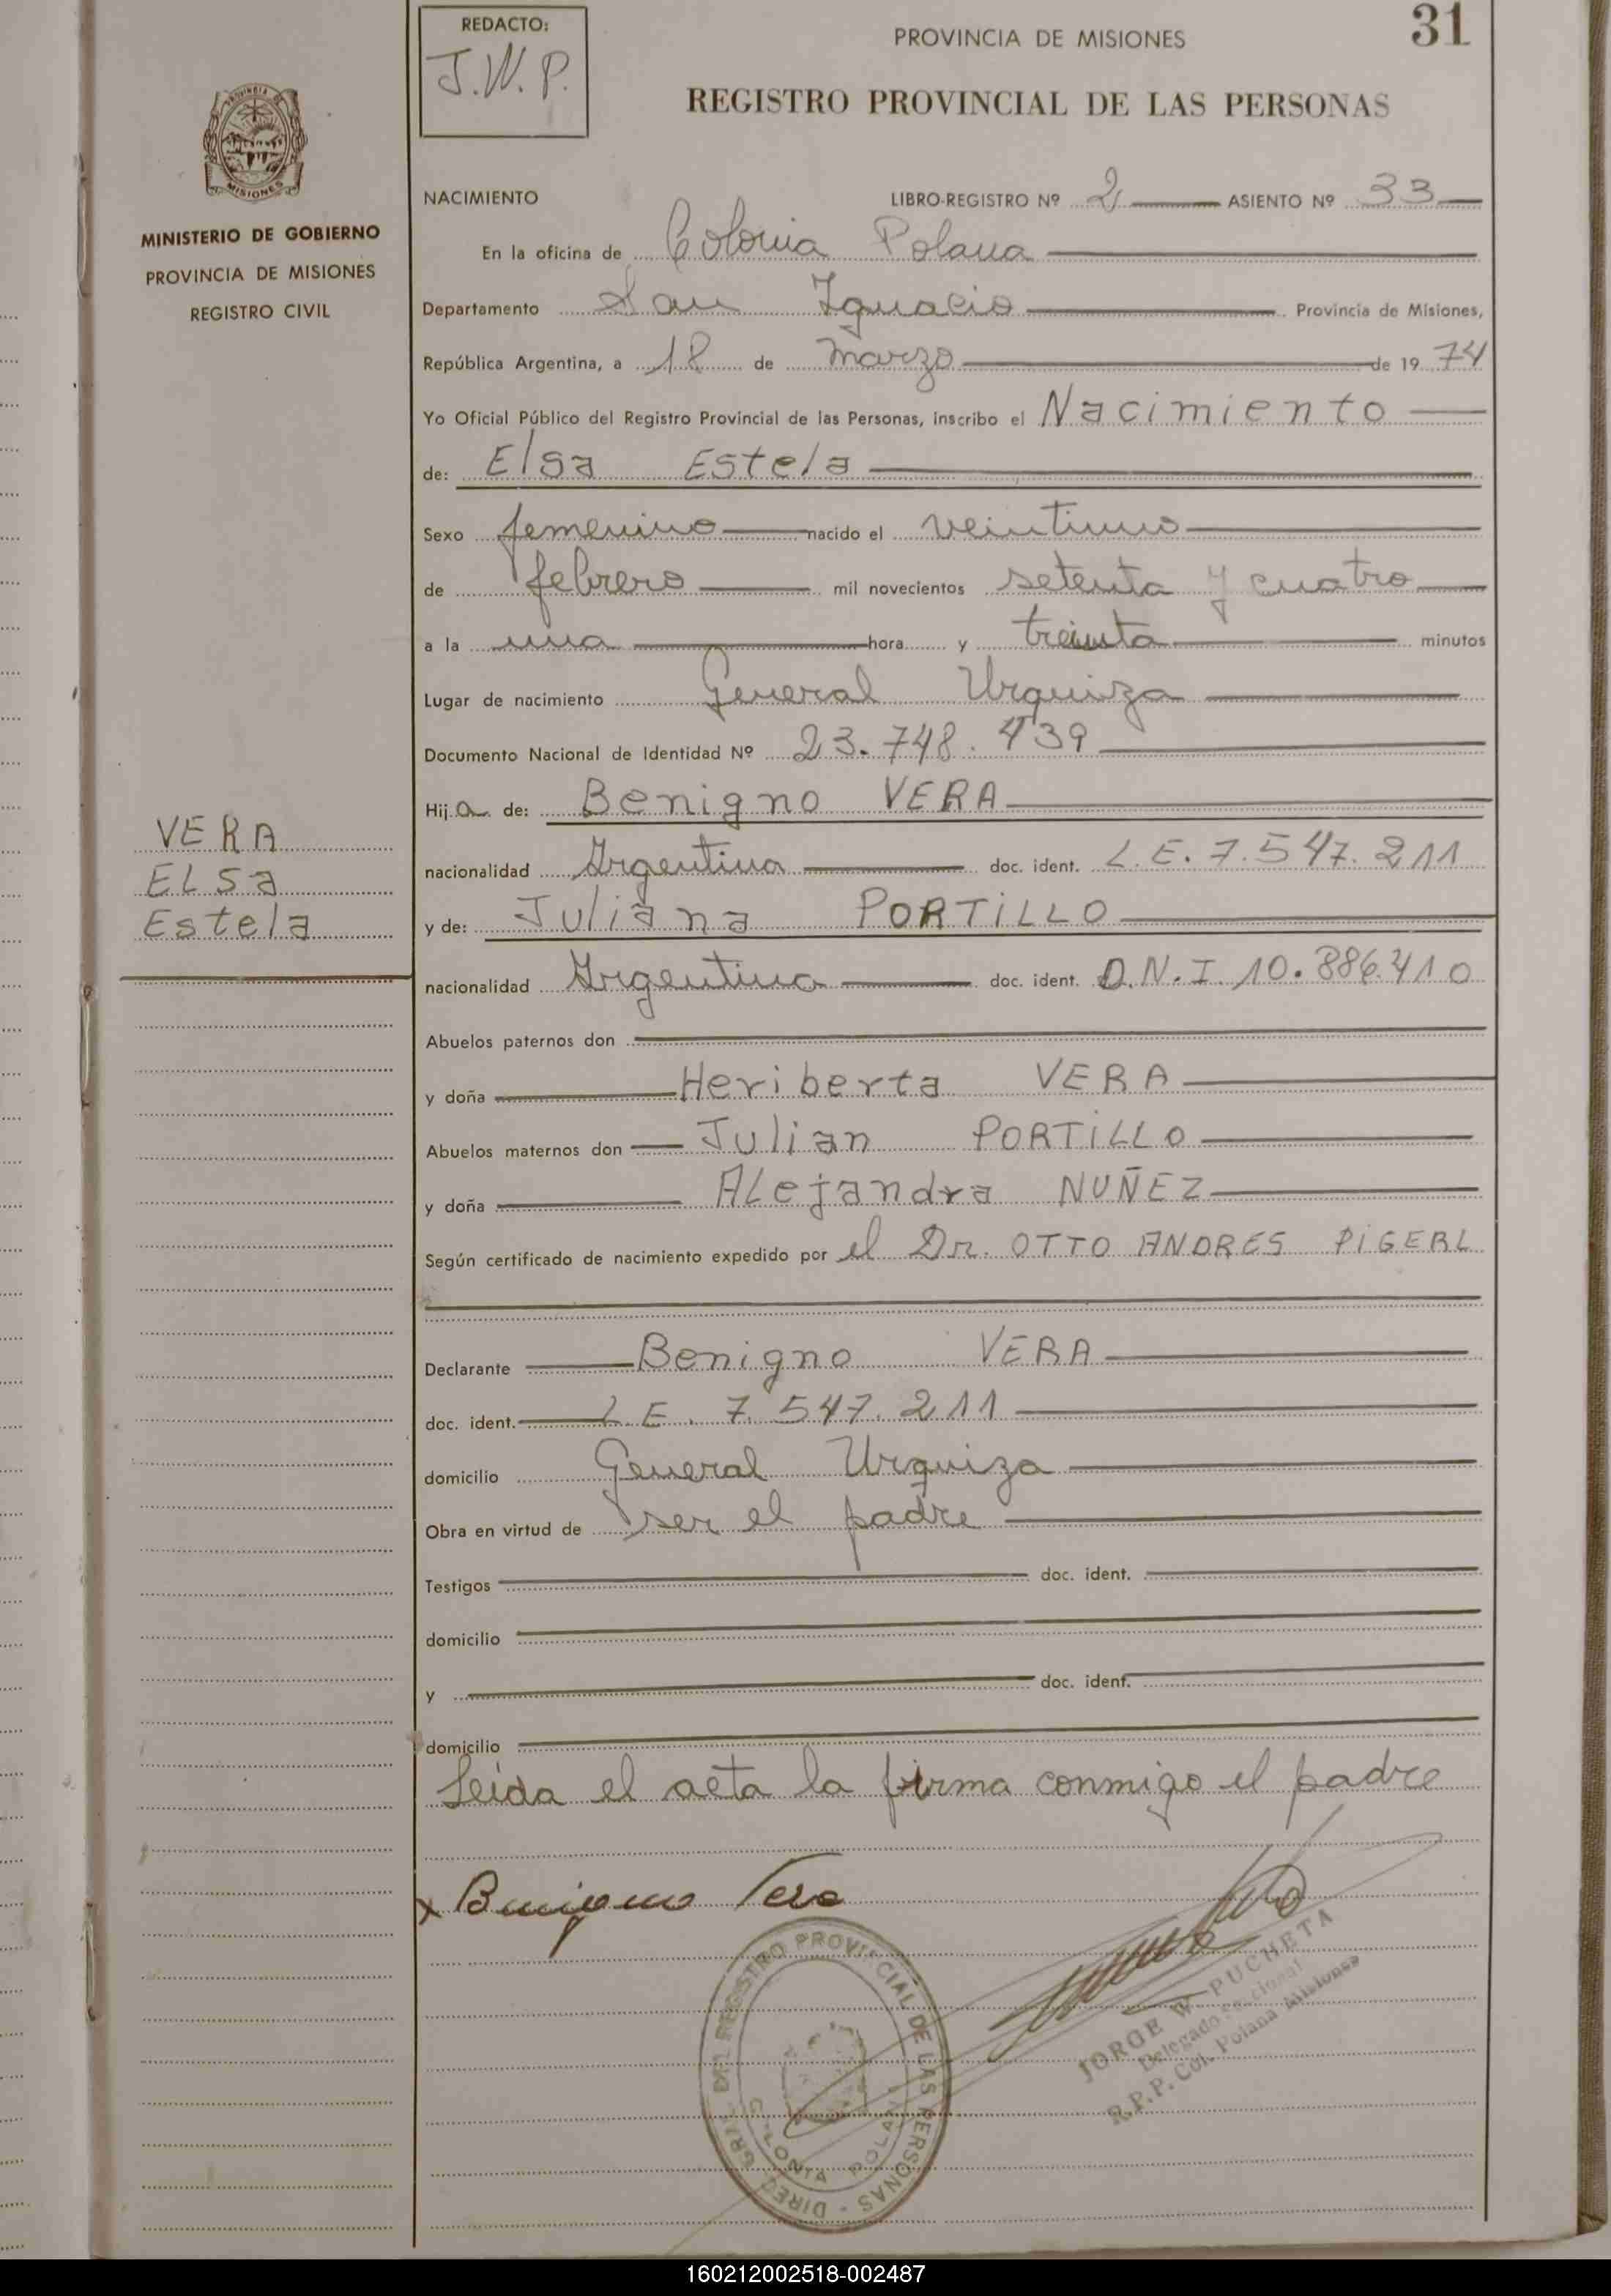 REDACTO:
J.W.P.
PROVINCIA DE MISIONES
31
REGISTRO PROVINCIAL DE LAS PERSONAS
PROVINCIA DE
MISIONES
MINISTERIO DE GOBIERNO
PROVINCIA DE MISIONES
REGISTRO CIVIL
NACIMIENTO LIBRO-REGISTRO Nº 2 ASIENTO Nº 33
En la oficina de Colonia Polana
Departamento San Ignacio Provincia de Misiones,
República Argentina, a 18 de marzo de 19 74
Yo Oficial Público del Registro Provincial de las Personas, inscribo el Nacimiento
de: Elsa Estela
Sexo femenino nacido el veintiuno
de febrero mil novecientos setenta y cuatro
a la una hora y treinta minutos
Lugar de nacimiento General Urquiza
Documento Nacional de Identidad Nº 23.748.439
Hija de: Benigno VERA
nacionalidad Argentina doc. ident. L.E. 7.547.211
y de: Juliana PORTILLO
nacionalidad Argentina doc. ident. D.N.I. 10.886.410
Abuelos paternos don
y doña Heriberta VERA
Abuelos maternos don Julian PORTILLO
y doña ALejandra NUÑEZ
Según certificado de nacimiento expedido por el Dr. OTTO ANDRES PIGERL
Declarante Benigno VERA
doc. ident. L.E. 7.547.211
domicilio General Urquiza
Obra en virtud de ser el padre
Testigos doc. ident.
domicilio
y doc. ident.
domicilio
Leida el acta la firma conmigo el padre
VERA
ELSa
Estela
x Benigno Vera
DIREC. GRAL. DEL REGISTRO PROVINCIAL DE LAS PERSONAS
COLONIA POLANA
JORGE W. PUCHETA
Delegado Seccional
R.P.P. Col. Polana Misiones
160212002518-002487